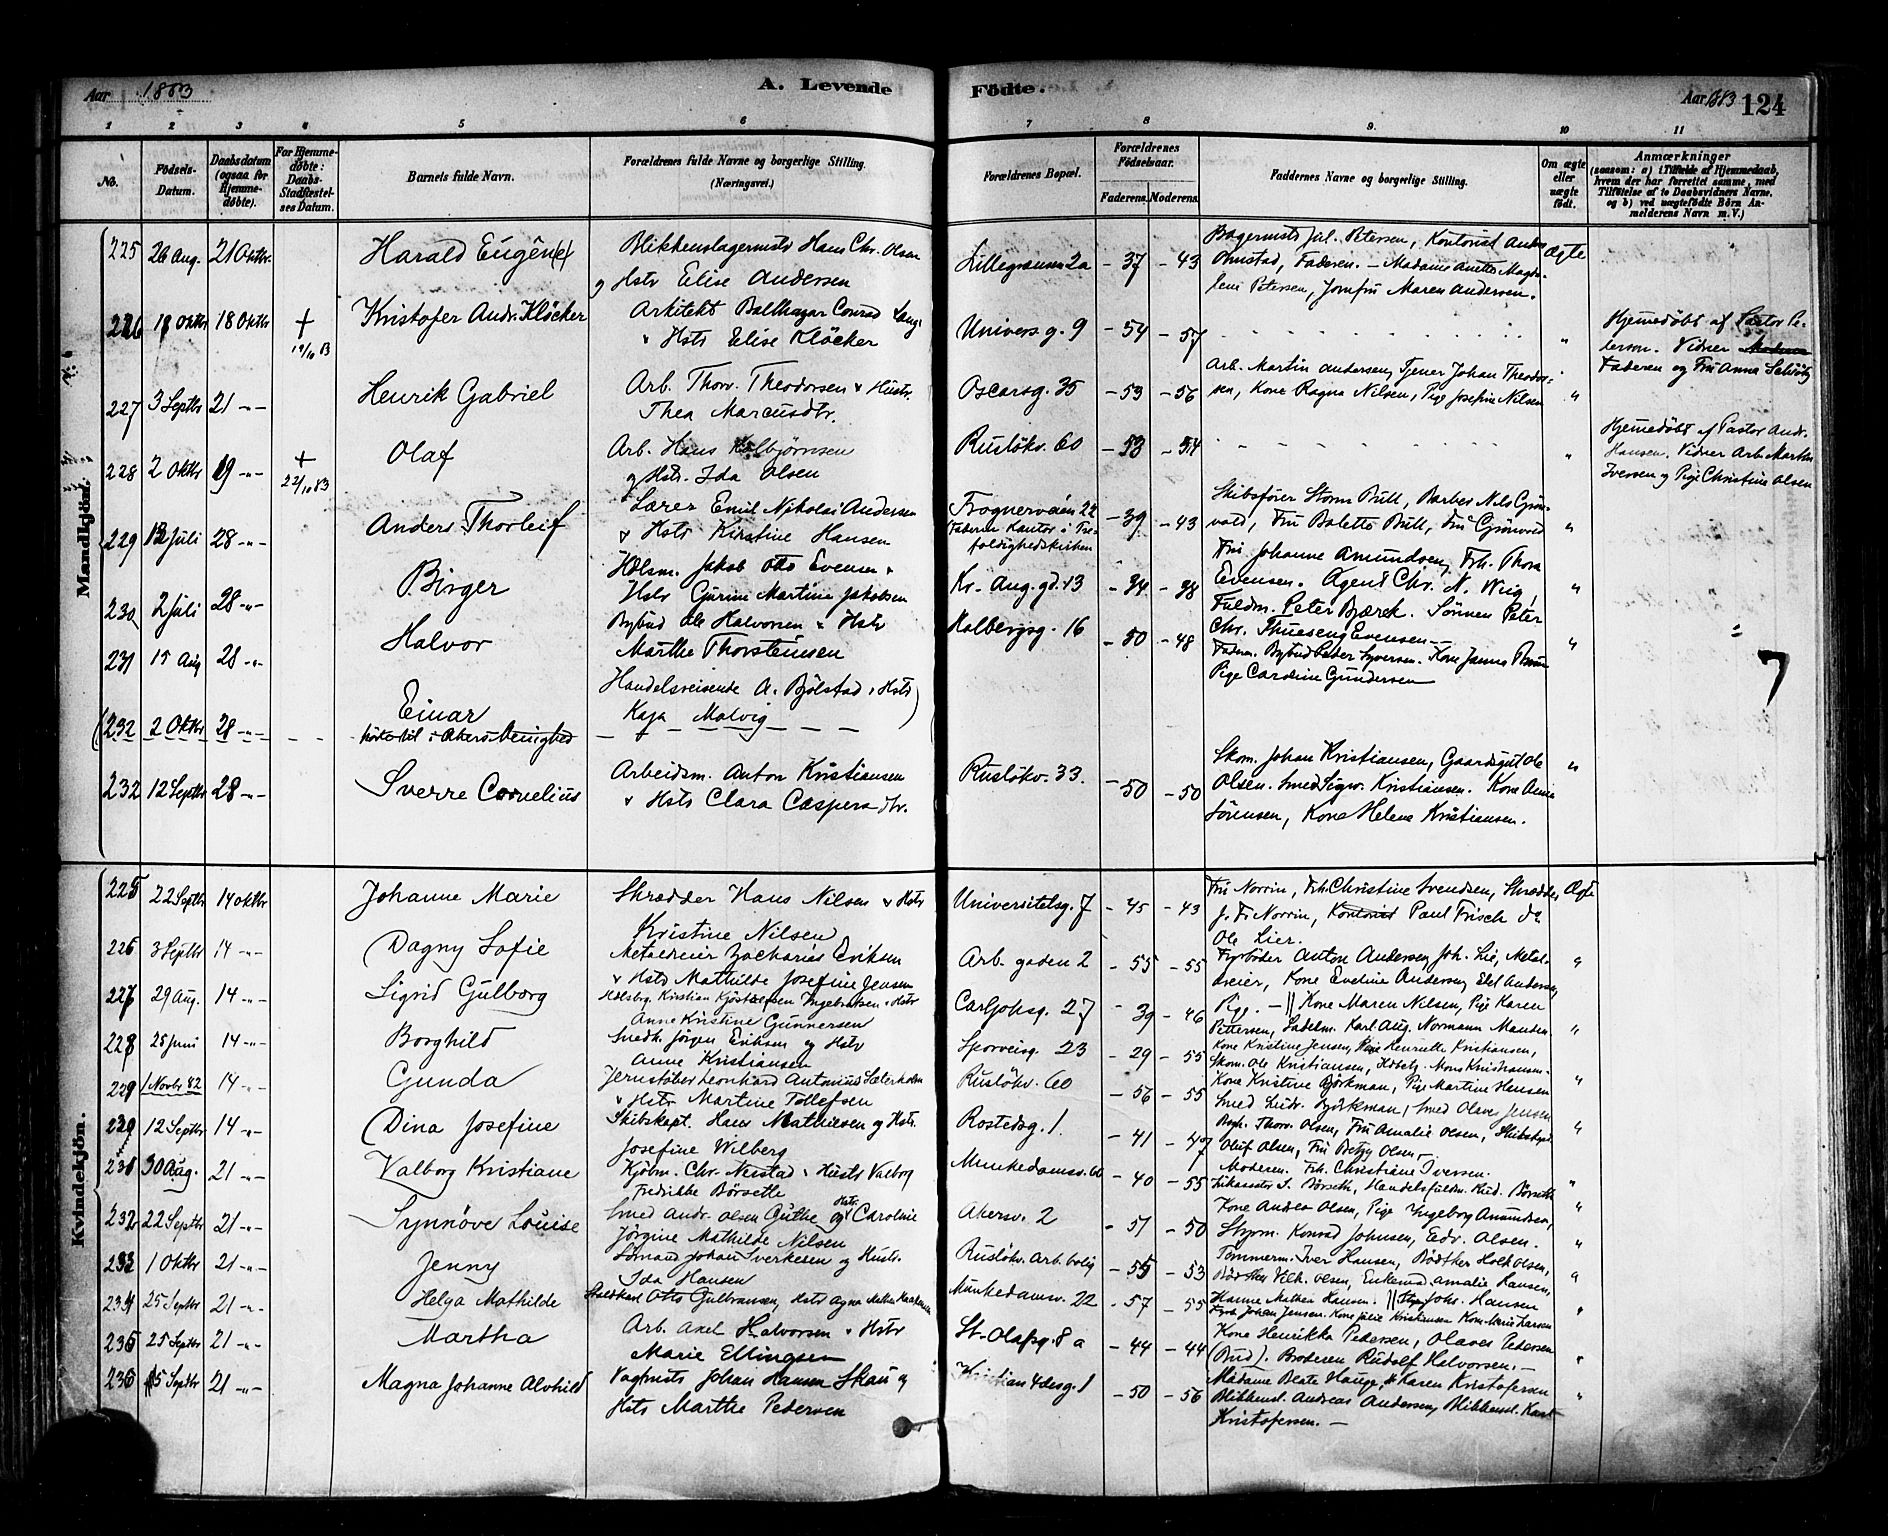 Aar 1883
A. Levende Födte.
Aar 1883 124
1 2 3 4 5 6 7 8 9. 10 11
No.
Födsels-Datum.
Daabsdatum (ogsaa for Hjemme-døbte).
For Hjemme-døbte: Daabs-Stadfæstel-ses Datum.
Barnets fulde Navn.
Forældrenes fulde Navne og borgerlige Stilling. (Næringsvei.)
Forældrenes Bopæl.
Forældrenes Födselsaar.
Faderens. Moderens.
Faddernes Navne og borgerlige Stilling.
Om ægte eller uægte födt.
Anmærkninger (saasom: a) i Tilfælde af Hjemmedaab, hvem der har forrettet samme, med Tilføielse af to Daabsvidners Navne. og b) ved uægtefødte Børn An-melderens Navn m. V.)
Mandkjön.
225 26 Aug. 21 Oktbr. Harald Eugen
Blikkenslagermstr Hans Chr. Olsen
og Hstr Elise Andersen
Lillegrænsen 2a – 37 – 43
Bagermstr Jul. Petersen, Kontorist Andr.
Ohnstad, Faderen. – Madame Anette Magda-
lene Petersen, Jomfru Maren Andersen.
Ægte
226 18 Oktbr 18 Oktbr + 19/10 83 Kristofer Andr. Kløcker
Arkitekt Balthazar Conrad Lange
& Hstr Elise Kløcker
Univers.g. 9 – 54 – 57 "
Hjemmedøbt af Pastor Pe-
terson. Vidner
Faderen og Fru Anna Schiøtz
227 3 Septbr 21 -"- Henrik Gabriel
Arb. Thorv. Theodorsen & Hustr.
Thea Marcusdtr.
Oscarsg. 35 – 53 – 56
Arb. Martin Andersen, Tjener Johan Theodor-
sen, Kone Ragna Nilsen, Pige Josefine Nilsen "
228 2 Oktbr 19 -"- + 22/10 83 Olaf
Arb. Hans Kolbjørnsen
og Hstr. Ida Olsen
Rusløkv. 60 – 53 – 54 "
Hjemmedøbt af Pastor Andr.
Hansen. Vidner Arb. Martin
Iversen og Pige Christine Olsen
229 12 Juli 28 -"- Anders Thorleif
Lærer Emil Nikolai Andersen
& Hstr Kirstine Hansen
Frognerveien 22
Faderen Kantor i Tre-
foldighedskirken
– 39 – 43
Skibsfører Storm Bull, Barber Nils Grøn-
vold, Fru Bolette Bull, Fru Grønvold "
230 2 Juli 28 -"- Birger
Hdlsm. Jakob Otto Evensen &
Hstr Gurine Martine Jakobsen
Kr. Aug. gd. 13 – 34 – 38
Fru Johanne Amundsen, Frk. Thora
Evensen. Agent Chr. N. Wiig,
Fuldm. Peter Bjærck. Sønnen Peter
Chr. Thuesen Evensen "
231 15 Aug 28 -"- Halvor
Bybud Ole Halvorsen & Hstr
Marthe Thorsteinsen
Holbergsg. 16 – 50 – 48
Faderen. Bybud Peder Syversen. Kone Janna
Pige Caroline Gundersen "
(232 2 Oktbr 28 -"- Einar
hører til i Akers Menighed
Handelsreisende A. Bjølstad & Hstr
Kaja Malvig)
7
232 12 Septbr 28 -"- Sverre Cornelius
Arbeidsm. Anton Kristiansen
& Hstr Clara Caspersdtr.
Rusløkv. 33. – 50 – 50
Skom. Johan Kristiansen, Gaardsgut Ole
Olsen. Smed Sigv. Kristiansen. Kone Anne
Sørensen, Kone Helene Kristiansen. "
Kvindekjön.
225 22 Septbr 14 Oktbr Johanne Marie
Skrædder Hans Nilsen & Hstr
Kristine Nilsen
Universitetsg. 7 – 45 – 43
Fru Norrin, Frk. Christine Svendsen, Skrædder
J. Fr. Norrin, Kontorist Paul Frisch do
Ole Lier.
Ægte
226 3 Septbr 14 -"- Dagny Sofie
Metaldreier Zacharias Eriksen
& Hstr Mathilde Josefine Jensen
Arb. gaden 2 – 55 – 55
Fyrbøder Anton Andersen, Joh. Lie, Metal-
dreier, Kone Eveline Andersen, Edel Andersen,
Pige. – "
227 29 Aug. 14 -"- Sigrid Gulborg
Hdlsbrg. Kirstian Kjøstelsen Ingebretsen & Hstr
Anne Kristine Gunnersen
Carl Johsg. 27 – 39 – 46
Kone Maren Nilsen, Pige Karen
Pettersen, Sadelm. Karl Aug. Normann "
228 25 Juni 14 -"- Borghild
Smedk. Jørgen Eriksen og Hstr
Anne Kristiansen
Sporveisg. 23 – 29 – 55
Kone Kristine Jensen, Pige Henriette Kristiansen,
Skom. Ole Kristiansen, Mons Kristiansen. "
229 1 Novbr 82 14 -"- Gunda
Jernstøber Leonhard Antonius Sæterholm
& Hstr Martine Tollefsen
Rusløkv. 60 – 56 – 55
Kone Kristine Björkman, Pige Martine Hansen
Smed Ludv. Björkman, Smed Olaus Jensen "
229 12 Septbr 14 -"- Dina Josefine
Skibskapt. Hans Mathiesen og Hstr.
Josefine Wilberg
Rostedsg. 1. – 41 – 47
Thorv. Olsen, Fru Amalie Olsen, Skibskapt
Oluf Olsen, Fru Betzy Olsen –
231 30 Aug. 21 -"- Valborg Kristiane
Kjøbm. Chr. Nestad & Hustr Valborg
Fredrikke Börseth
Munkedamsv. – 40 – 55
Moderen. Frk. Christiane Iversen.
S. Børseth, Handelsfuldm. Rud. Børseth "
232 22 Septbr 21 -"- Synnøve Louise
Smed Andr. Olsen Guthe og Hstr. Caroline
Jörgine Mathilde Nilsen
Akersv. 2 – 51 – 50
Kone Andrea Olsen, Pige Ingeborg Amundsen,
Styrm. Konrad Johnsen, Edv. Olsen. "
233 1 Oktbr 21 -"- Jenny
Sømand Johan Sverkesen og Hustr.
Ida Hansen
Rusløkv. Arb. bolig – 55 – 53
Tømmerm. Iver Hansen, Bødtker Holt Olsen,
Bødtker Vilh. Olsen, Enkemad. Amalie Larsen,
Hanne Mathea Hansen. "
234 25 Septbr 21 -"- Helga Mathilde
Staldkarl Otto Gulbransen, Hstr Agna
Munkedamsv. 22 – 57 – 55
Johs. Hansen
Johan Jensen. Kone Julie Kristiansen Kone Maris Larsen "
235 25 Septbr 21 -"- Martha
Arb. Axel Halvorsen & Hstr
Marie Ellingsen
St. Olafsg. 8 a – 44 – 44
Kone Henrikke Pedersen, Olaves Pedersen
(Bud). Broderen Rudolf Halvorsen. – "
236 15 Septbr 21 -"- Magna Johanne Alvhild
Vognmstr Johan Hansen Skau og
Hstr Marthe Pedersen
Kristian 4des g. 1 – 50 – 56
Madame Beate Hauge, Karen Kristofersen
Blikkensl. Andreas Andersen, Blikkensl. Karl
Kristofersen. – "